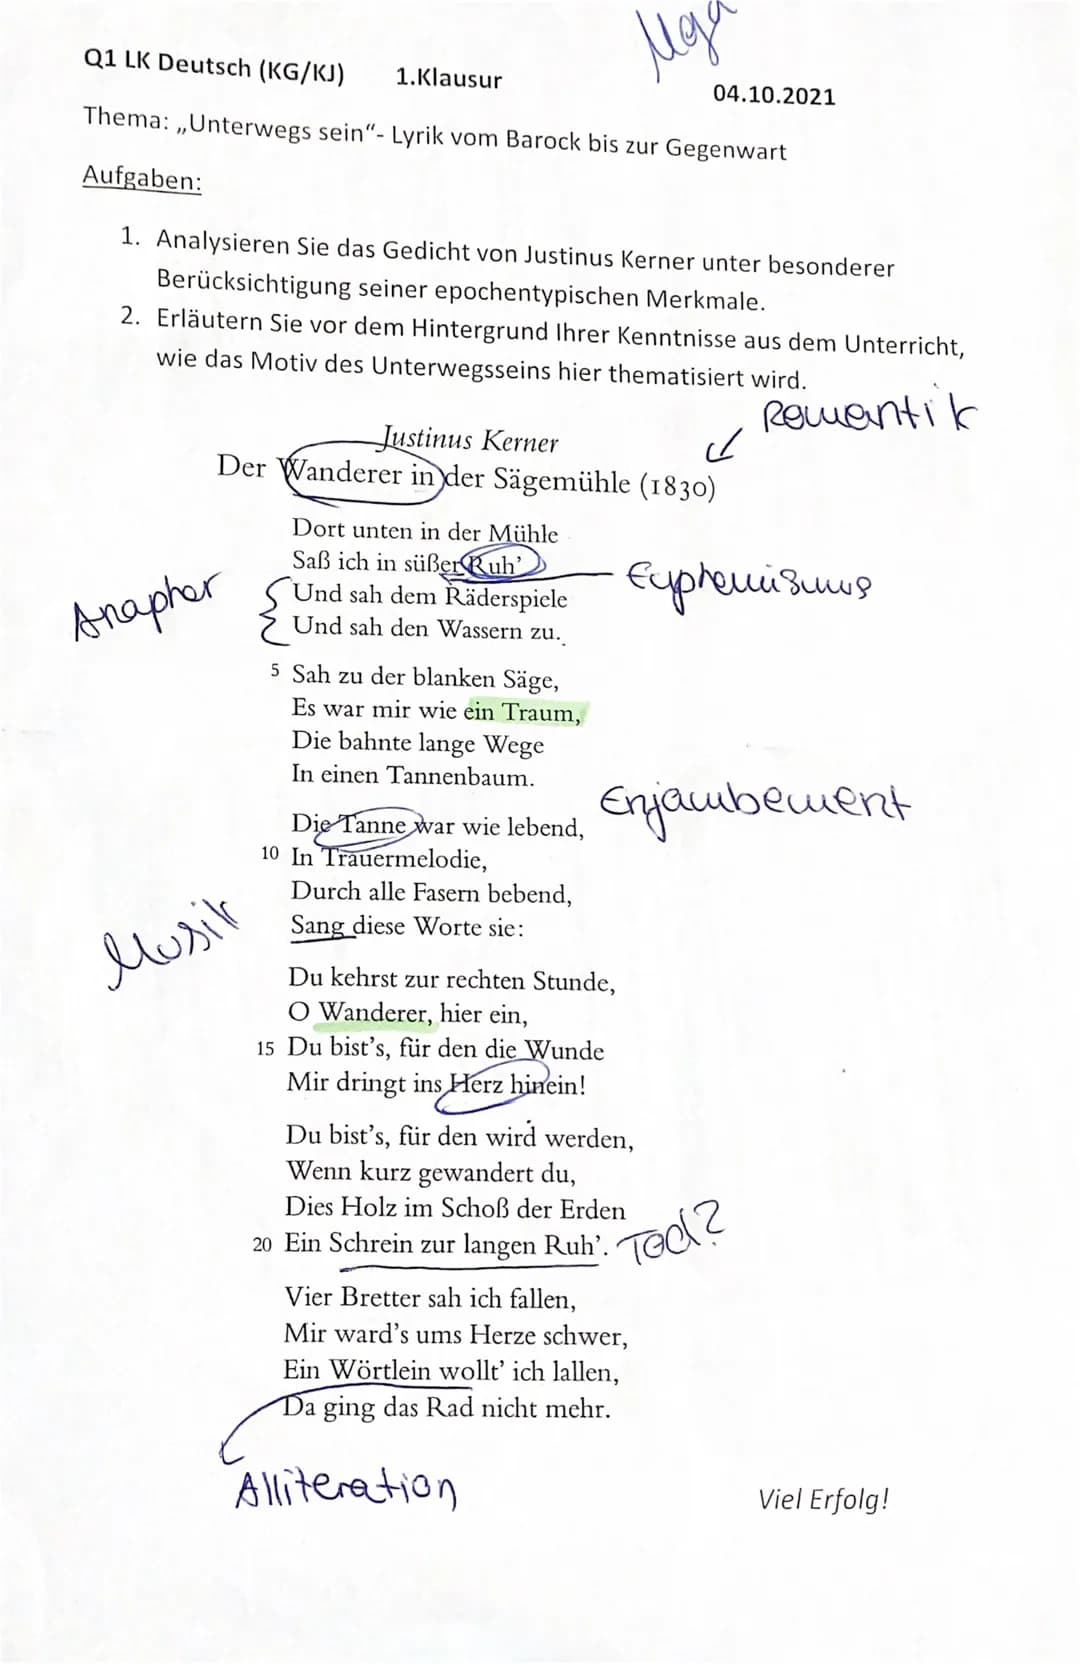 Q1 LK Deutsch (KG/KJ) 1.Klausur
04.10.2021
Thema: „Unterwegs sein“- Lyrik vom Barock bis zur Gegenwart
Aufgaben:
1. Analysieren Sie das Gedicht von Justinus Kerner unter besonderer
Berücksichtigung seiner epochentypischen Merkmale.
2. Erläutern Sie vor dem Hintergrund Ihrer Kenntnisse aus dem Unterricht,
wie das Motiv des Unterwegsseins hier thematisiert wird.
Romantik
Justinus Kerner
Der Wanderer in der Sägemühle (1830)
Dort unten in der Mühle
Saß ich in süßer Ruh’
Euphemismus
Anapher
Und sah dem Räderspiele
Und sah den Wassern zu.
5 Sah zu der blanken Säge,
Es war mir wie ein Traum,
Die bahnte lange Wege
In einen Tannenbaum.
Enjambement
Die Tanne war wie lebend,
10 In Trauermelodie,
Durch alle Fasern bebend,
Musik
Sang diese Worte sie:
Du kehrst zur rechten Stunde,
O Wanderer, hier ein,
15 Du bist’s, für den die Wunde
Mir dringt ins Herz hinein!
Du bist’s, für den wird werden,
Wenn kurz gewandert du,
Dies Holz im Schoß der Erden
20 Ein Schrein zur langen Ruh’. Tod?
Vier Bretter sah ich fallen,
Mir ward’s ums Herze schwer,
Ein Wörtlein wollt’ ich lallen,
Da ging das Rad nicht mehr.
Alliteration
Viel Erfolg!